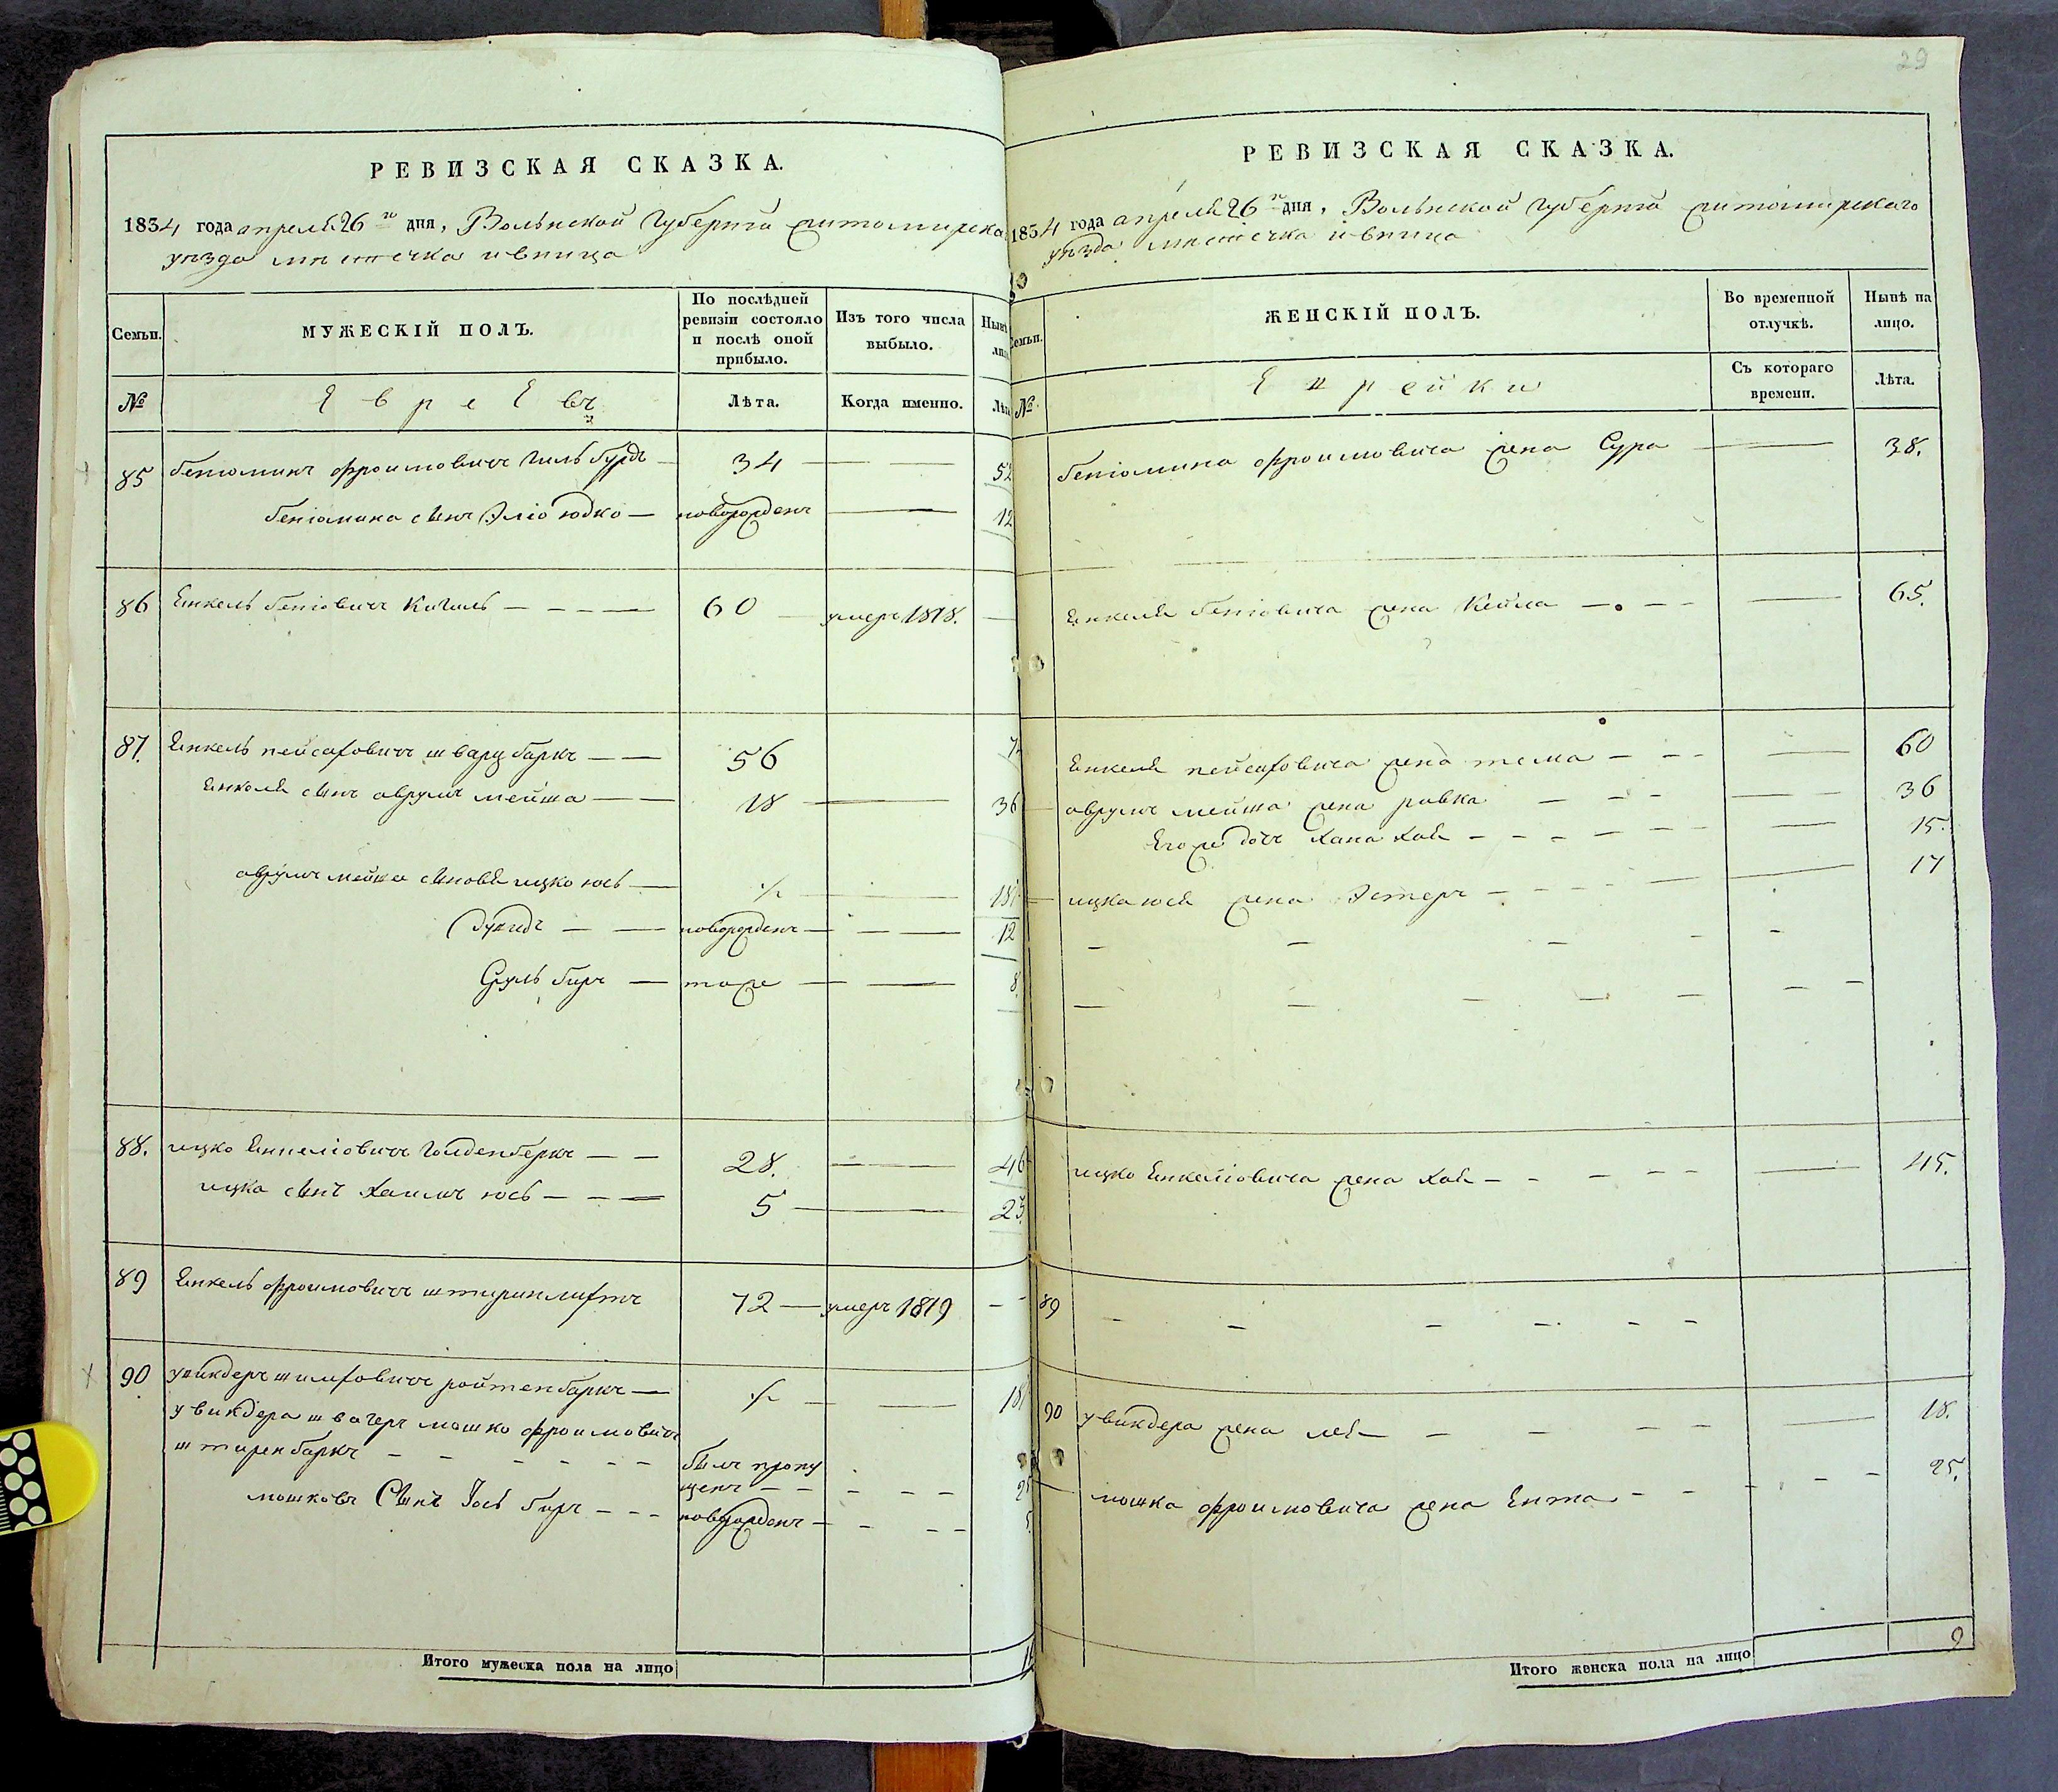 РЕВИЗСКАЯ СКАЗКА.
1834 года апреля 26 го дня, Волынской Губернiи житомирска
уезда местечка ивница
Семьи.
МУЖЕСКIЙ ПОЛЪ.
По послѣдней ревизiи состояло и послѣ оной прибыло.
Изъ того числа выбыло.
№
Евреевъ
Лѣта.
Когда именно.
85 бенiоминъ фроимовичъ 34 — 52
бенiомина сынъ Элiо юдко — новорожденъ — 12
86 Енкель бенiовичъ Кигель — 60 умеръ 1818.
87. Енкель пейсаховичъ шварцбаркъ — 56
Енкеля сынъ аврумъ мейша — 18 — 36
аврумъ мейша сыновя ицко юсь — ·/· — 18
— новорожденъ — 12
Сруль беръ — тоже — 8
88. ицко Енкелiовичъ Голденберкъ — 28. — 46
ицка сынъ Хаимъ юсь — 5 — 23
89 Енкель фроимовичъ 72 — умеръ 1819
90 увикдеръ ройтенбаркъ — ·/· — 18
увикдера швагеръ мошко фроимовичъ
штиренбаркъ — былъ пропу
щенъ — 25
мошковъ Сынъ Iось беръ — новорожденъ — 5
Итого мужеска пола на лицо
29
РЕВИЗСКАЯ СКАЗКА.
1834 года апреля 26 го дня, Волынской Губернiи житомирского
уезда местечка ивница
Семьи.
ЖЕНСКIЙ ПОЛЪ.
Во временной отлучкѣ.
Нынѣ на лицо.
№
Еврейки
Съ котораго времени.
Лѣта.
бенiомина фроимовича жена Сура — 38.
Енкеля бенiовича жена Кейла — 65.
Енкеля пейсаховича жена тема — 60
аврумъ мейша жена ривка — 36
Его же дочь Хана Хая — 15.
ицка юся жена Эстеръ — 17
ицко Енкелiовича жена Хая — 45.
89
90 увикдера жена лея — 18.
мошка фроимовича жена Ента — 25.
Итого женска пола на лицо 9